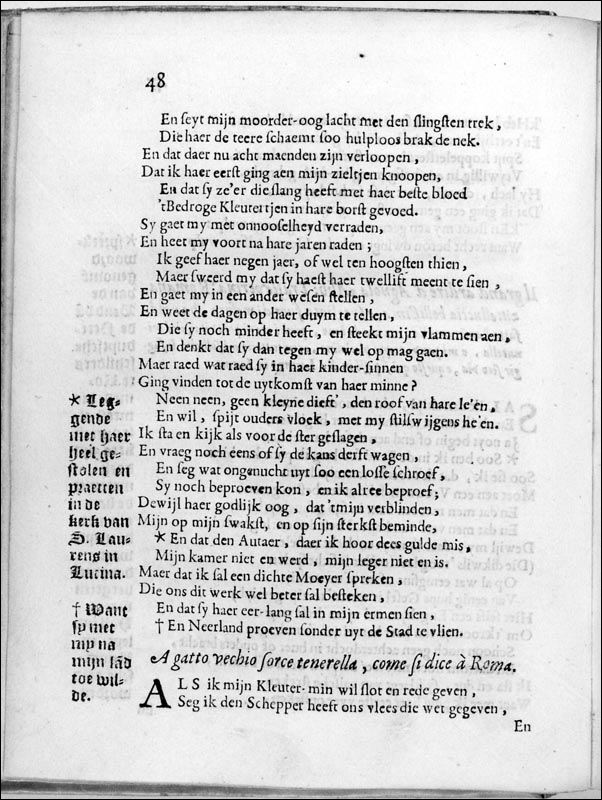 48
En seyt mijn moorder-oog lacht met den slingsten trek,
Die haer de teere schaemt soo hulploos brak de nek.
En dat daer nu acht maenden zijn verloopen,
Dat ik haer eerst ging aen mijn zieltjen knoopen,
En dat sy ze'er die slang heeft met haer beste bloed
'tBedroge Kleutertjen in hare borst gevoed.
Sy gaet my met onnooselheyd verraden,
En heet my voort na hare jaren raden;
Ik geef haer negen jaer, of wel ten hoogsten thien,
Maer sweerd my dat sy haest haer twellift meent te sien,
En gaet my in een ander wesen stellen,
En weet de dagen op haer duym te tellen,
Die sy noch minder heeft, en steekt mijn vlammen aen,
En denkt dat sy dan tegen my wel op mag gaen.
Maer raed wat raed sy in haer kinder-sinnen
Ging vinden tot de uytkomst van haer minne?
Neen neen, geen kleyne dieft', den roof van hare le'en,
En wil, spijt ouders vloek, met my stilswijgens he'en.
Ik sta en kijk als voor de ster geslagen,
En vraeg noch eens of sy de kans derft wagen,
En seg wat ongenucht uyt soo een losse schroef,
Sy noch beproeven kon, en ik alree beproef;
Dewijl haer godlijk oog, dat 'tmijn verblinden,
Mijn op mijn swakst, en op sijn sterkst beminde,
* En dat den Autaer, daer ik hoor dees gulde mis,
Mijn kamer niet en werd, mijn leger niet en is.
Maer dat ik sal een dichte Moeyer spreken,
Die ons dit werk wel beter sal besteken,
En dat sy haer eer-lang sal in mijn ermen sien,
† En Neerland proeven sonder uyt de Stad te vlien.
* Leg-
gende
met haer
heel ge-
stolen en
praetten
in de
kerk van
S. Lau-
rens in
Lucina.
† Want
sy met
my na
mijn lād
toe wil-
de.
A gatto vechio sorce tenerella, come si dice à Roma.
ALS ik mijn Kleuter-min wil slot en rede geven,
Seg ik den Schepper heeft ons vlees die wet gegeven,
En